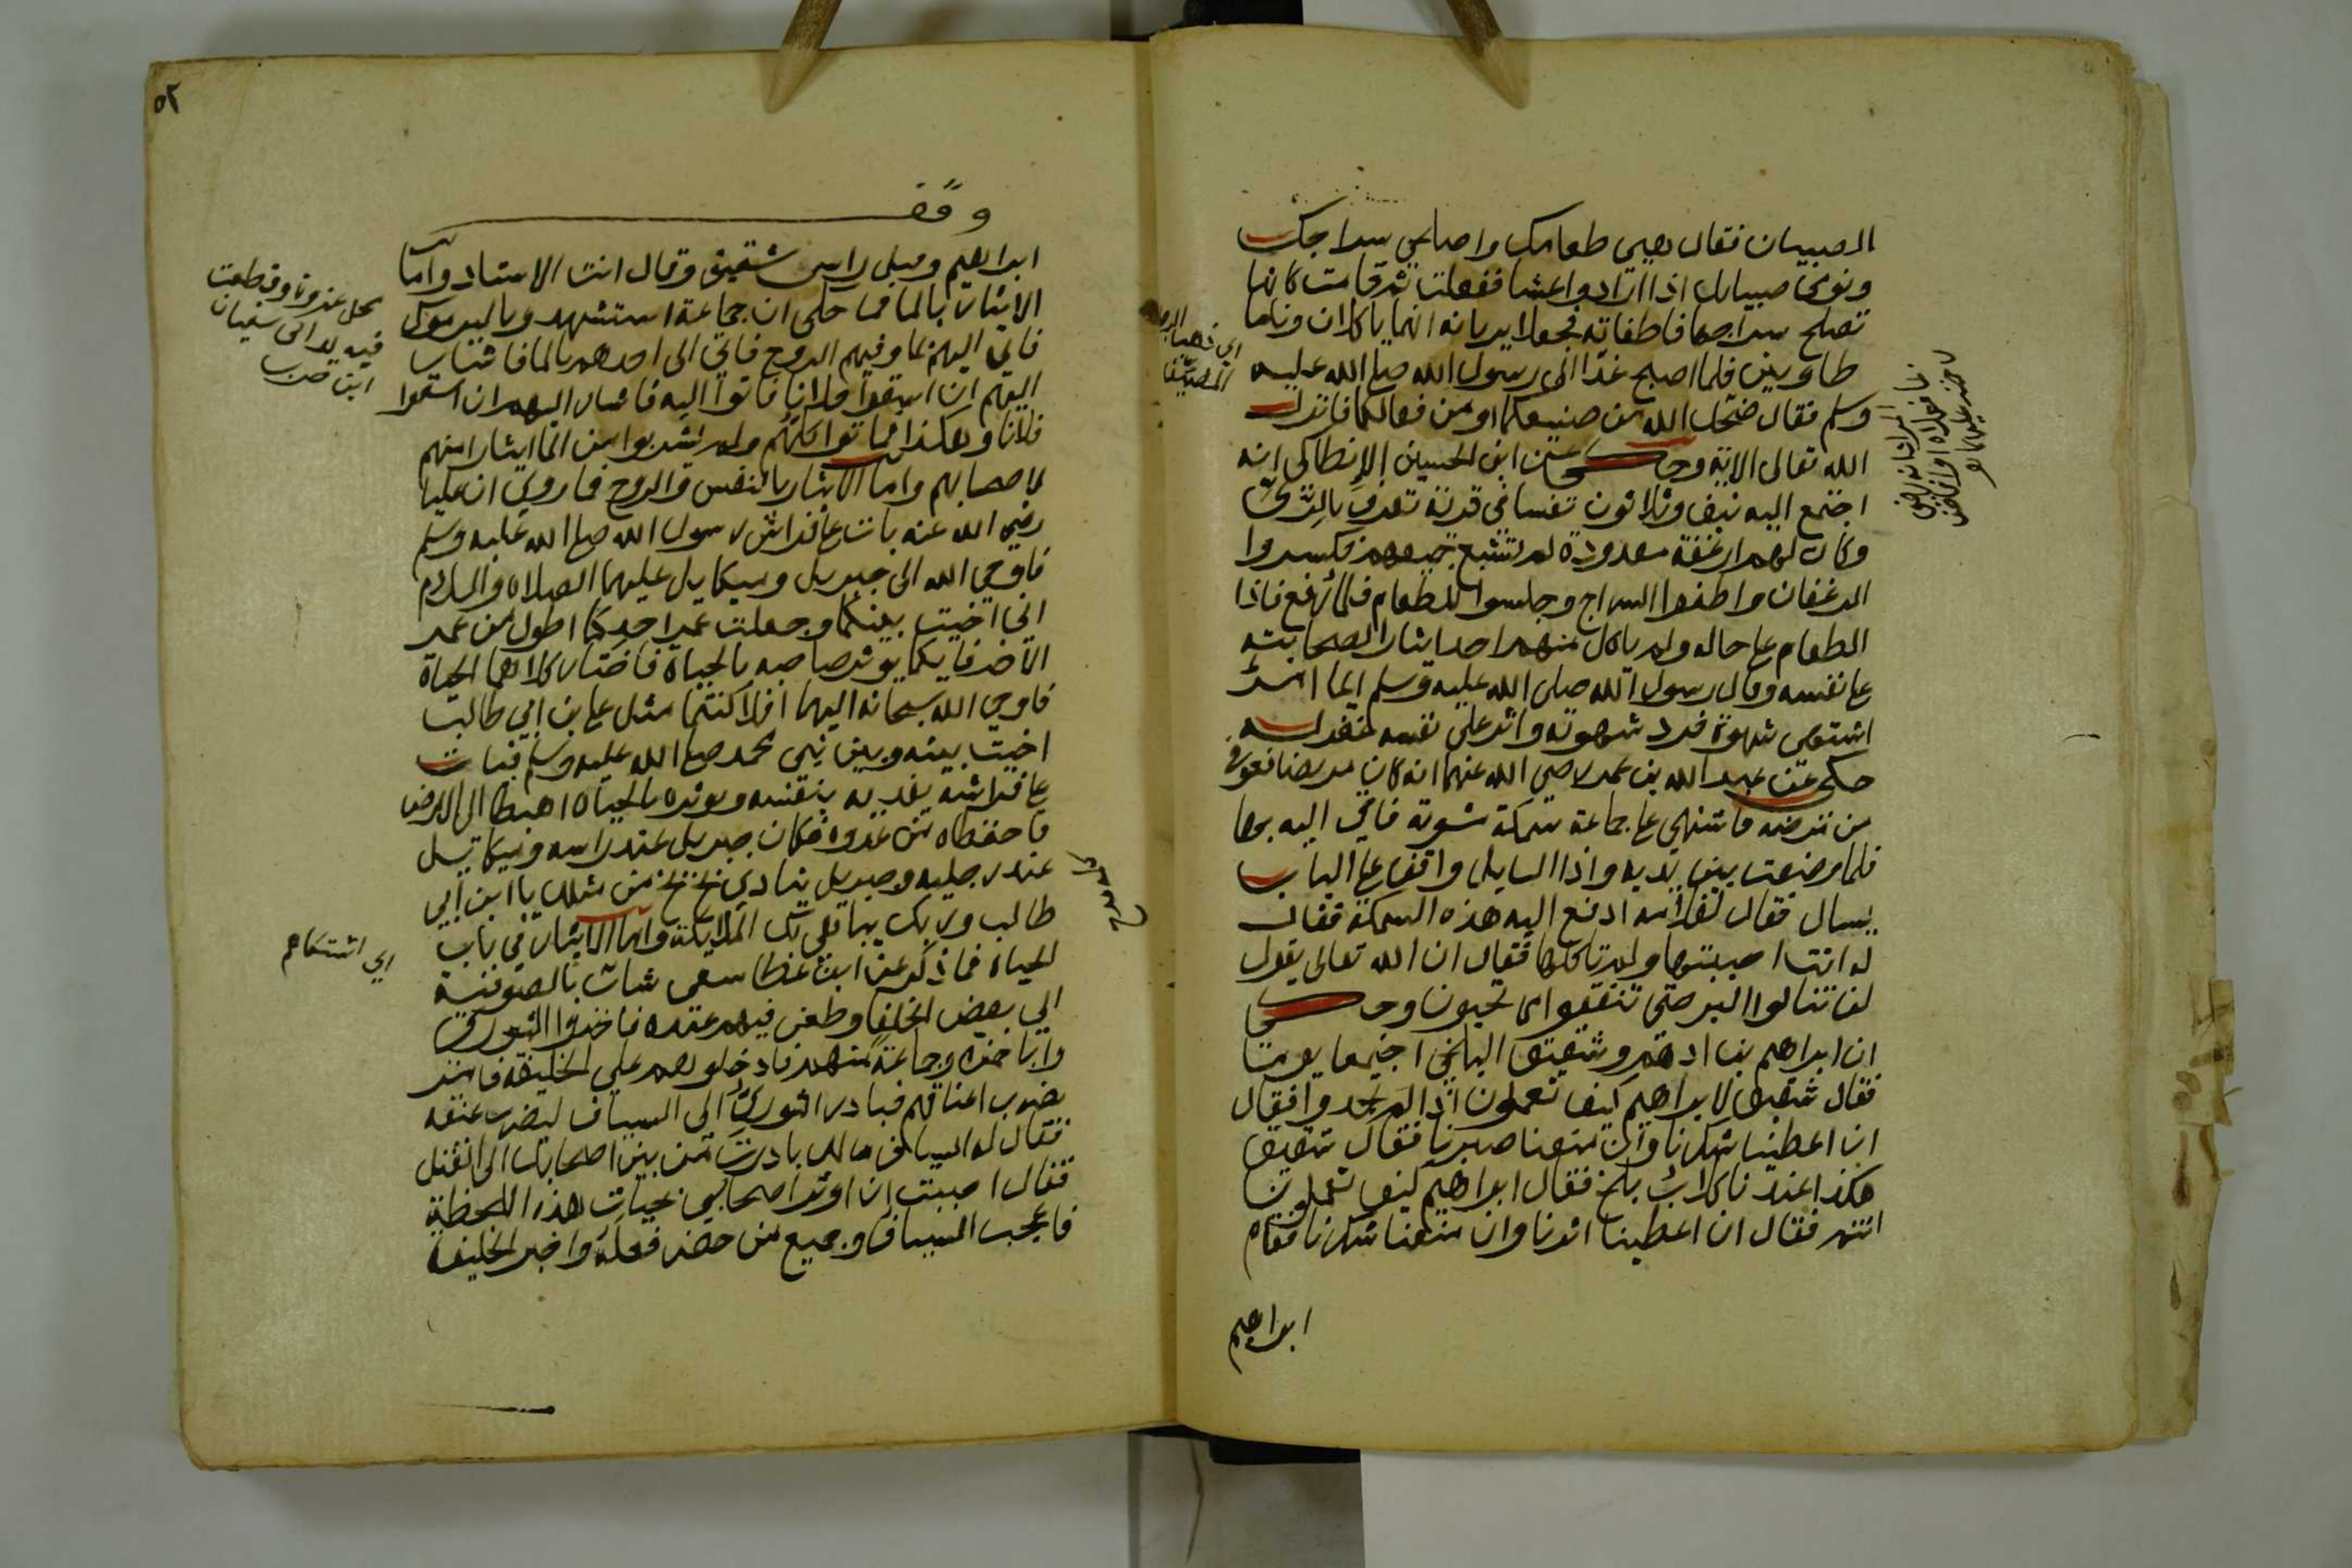 الصبيان فقال هيي طعامك واصلحي سراجك
ونومي صبيانك اذا ارادوا عشا ففعلت ثم قامت كانها
تصلح سراجها فاطفاته فجعلا يريانه انهما ياكلان وناما
طاويين فلما اصبح غدا الى رسول الله صلى الله عليه
وسلم فقال ضحك الله من صنيعكما او من فعالكما فانزل
الله تعالى الاية وحكي عن ابن الحسين الانطاكي انه
اجتمع اليه نيف وثلاثون نفسا في قرية تعرف بالري
وكان لهم ارغفة معدودة لم تشبع جميعهم فكسروا
الرغفان واطفوا السراج وجلسوا للطعام فلما رفع فاذا
الطعام على حاله ولم ياكل منهم احد ايثارا لصحابته
على نفسه وقال رسول الله صلى الله عليه وسلم ايما امرئ
اشتهى شهوة فرد شهوته واثر على نفسه غفر له
حكي عن عبد الله بن عمر رضي الله عنهما انه كان مريضا فعوفي
من مرضه فاشتهى على جماعة سمكة مشوية فاتي اليه بها
فلما وضعت بين يديه واذا السايل واقف على الباب
يسال فقال لغلامه ادفع اليه هذه السمكة فقال
له انت احببتها ولم تاكلها فقال ان الله تعالى يقول
لن تنالوا البر حتى تنفقوا مما تحبون وحكي
ان ابراهيم بن ادهم وشقيق البلخي اجتمعا يوما
فقال شقيق لابراهيم كيف تعملون اذا لم تجدوا فقال
ان اعطينا شكرنا وان منعنا صبرنا فقال شقيق
هكذا عندنا كلاب بلخ فقال ابراهيم كيف تعملون
انتم فقال ان اعطينا اثرنا وان منعنا شكرنا فقام
ابراهيم
٥٢
وقف
ابراهيم وقبل راس شقيق وقال انت الاستاد واما
الايثار بالما فما حكى ان جماعة استشهدوا باليرموك
فاتي اليهم بما وفيهم الروح فاتي الى احدهم بالما فاشار
اليهم ان اسقوا فلانا فاتوا اليه فاشار اليهم ان اسقوا
فلانا وهكذا فماتوا كلهم ولم يشربوا من الما ايثارا منهم
لاصحابهم واما الايثار بالنفس والروح فما روي ان عليا
رضي الله عنه بات على فراش رسول الله صلى الله عليه وسلم
فاوحي الله الى جبريل وميكايل عليهما الصلاة والسلام
اني اخيت بينكما وجعلت عمر احدكما اطول من عمر
الاخر فايكما يوثر صاحبه بالحياة فاختار كلاهما الحياة
فاوحي الله سبحانه اليهما افلا كنتما مثل علي بن ابي طالب
اخيت بينه وبين نبيي محمد صلى الله عليه وسلم فبات
على فراشه يفديه بنفسه ويوثره بالحياة اهبطا الى الارض
فاحفظاه من عدوه فكان جبريل عند راسه وميكاييل
عند رجليه وجبريل ينادي بخ بخ من مثلك يا ابن ابي
طالب وربك يباهي بك الملايكة واما الايثار في باب
الحياة فما ذكر عن ابن عطا سعى شاب بالصوفية
الي بعض الخلفا وطعن فيهم عنده فاخذوا النوري
وابا حمزه وجماعة منهم فادخلوهم على الخليفة فامر
بضرب اعناقهم فبادر النوري الى السياف ليضرب عنقه
فقال له السياف مالك بادرت من بين اصحابك الى القتل
فقال احببت ان اوثر اصحابي بحيات هذه اللحظة
فاعجب السياف وجميع من حضر فعله واخبر الخليفة
فيه يد ابي سفيان
ابن حرب
اي اشتكاهم